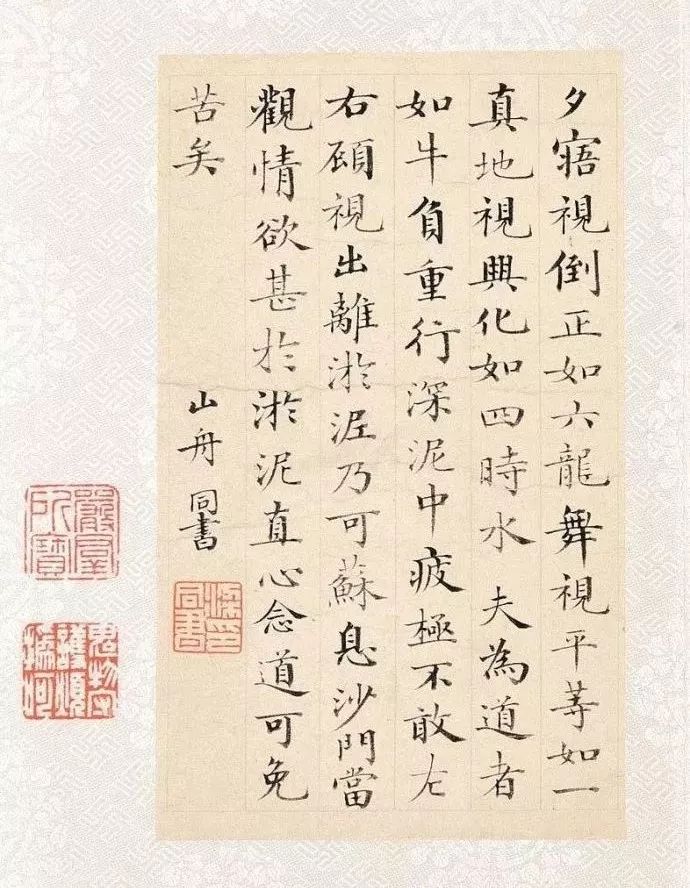 夕寤視倒正如六龍舞視平等如一
真地視興化如四時水 夫為道者
如牛負重行深泥中疲極不敢左
右顧視出離淤泥乃可蘇息沙門當
觀情欲甚於淤泥直心念道可免
苦矣
山舟同書
梁印同書